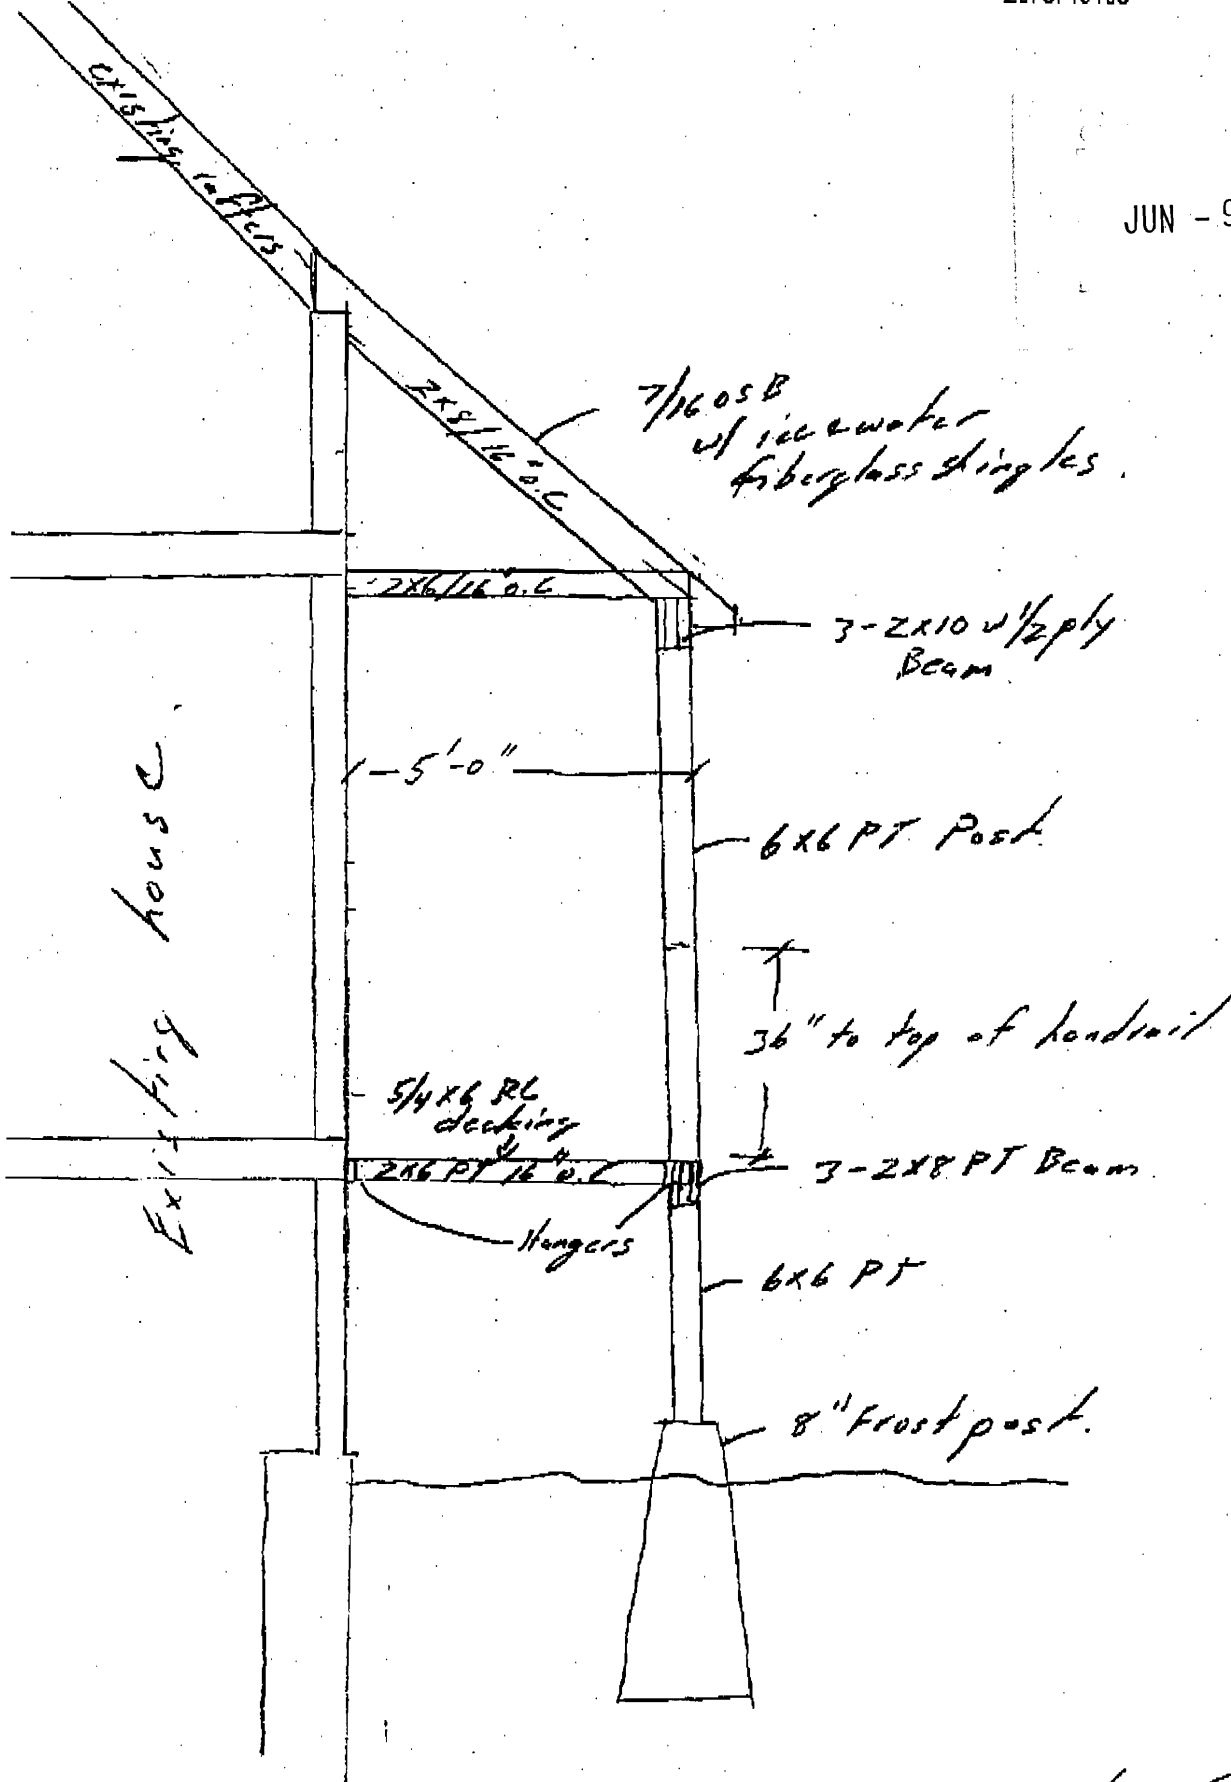 JUN - 9
existing rafters
2x8/16" o.c
7/16 OSB
w/ ice & water
fiberglass shingles.
2x6/16" o.c
3-2x10 w 1/2 ply
Beam
5'-0"
6x6 PT Post
Existing house
36" to top of handrail
5/4x6
decking
2x6 PT 16" o.c
3-2x8 PT Beam
Hangers
6x6 PT
8" Frost post.